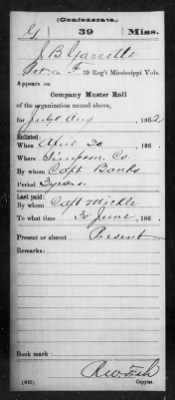 (Confederate.)
G 39 Miss.
J B Garrette
Pvt, Co. F, 39 Reg't Mississippi Vols.
Appears on
Company Muster Roll
of the organization named above,
for July & Aug, 1862
Enlisted:
When April 30, 186
Where Simpson Co
By whom Capt Banks
Period 3 years
Last paid:
By whom Capt Mickle
To what time 30 June, 186
Present or absent Present
Remarks:
Book mark:
R W Fish
(642) Copyist.